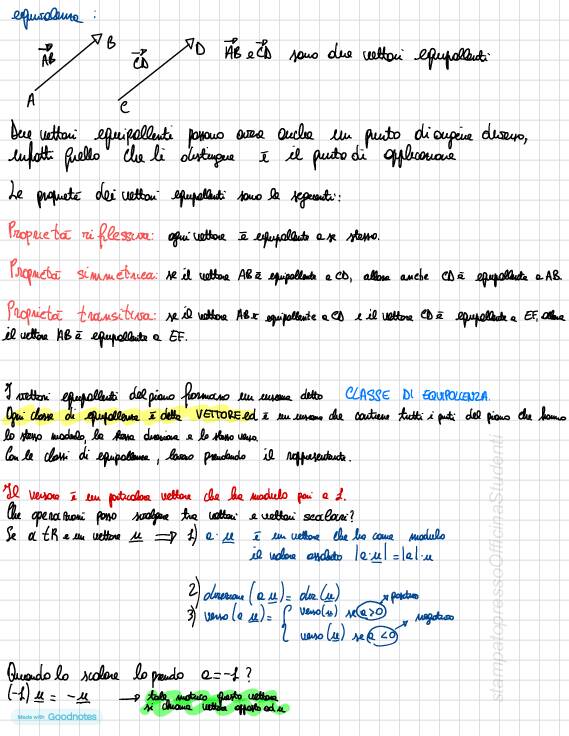 equivalenza:
AB B CD D AB e CD sono due vettori equipollenti
A C
Due vettori equipollenti possono avere anche un punto di origine diverso,
infatti quello che li distingue è il punto di applicazione
Le proprietà dei vettori equipollenti sono le seguenti:
Proprietà riflessiva: ogni vettore è equipollente a se stesso.
Proprietà simmetrica: se il vettore AB è equipollente a CD, allora anche CD è equipollente a AB.
Proprietà transitiva: se il vettore AB è equipollente a CD e il vettore CD è equipollente a EF, allora
il vettore AB è equipollente a EF.
I vettori equipollenti del piano formano un insieme detto CLASSE DI EQUIPOLLENZA.
Ogni classe di equipollenza è detta VETTORE ed è un insieme che contiene tutti i punti del piano che hanno
lo stesso modulo la stessa direzione e lo stesso verso.
Con le classi di equipollenza, lavoro prendendo il rappresentante.
Il versore è un particolare vettore che ha modulo pari a 1.
Che operazioni posso svolgere tra vettori e vettori scalari?
Se a ∈ R e un vettore u ⟹ 1) a · u è un vettore che ha come modulo
il valore assoluto |a·u| = |a|·u
2) direzione (a u) = dir (u) positivo
3) verso (a u) = { verso (u) se a > 0 negativo
verso (u) se a < 0
Quando lo scalare lo prendo a = -1?
(-1) u = -u → tale motivo questo vettore
si chiama vettore opposto ad u
Made with Goodnotes
stampatopressoOfficinaStudenti